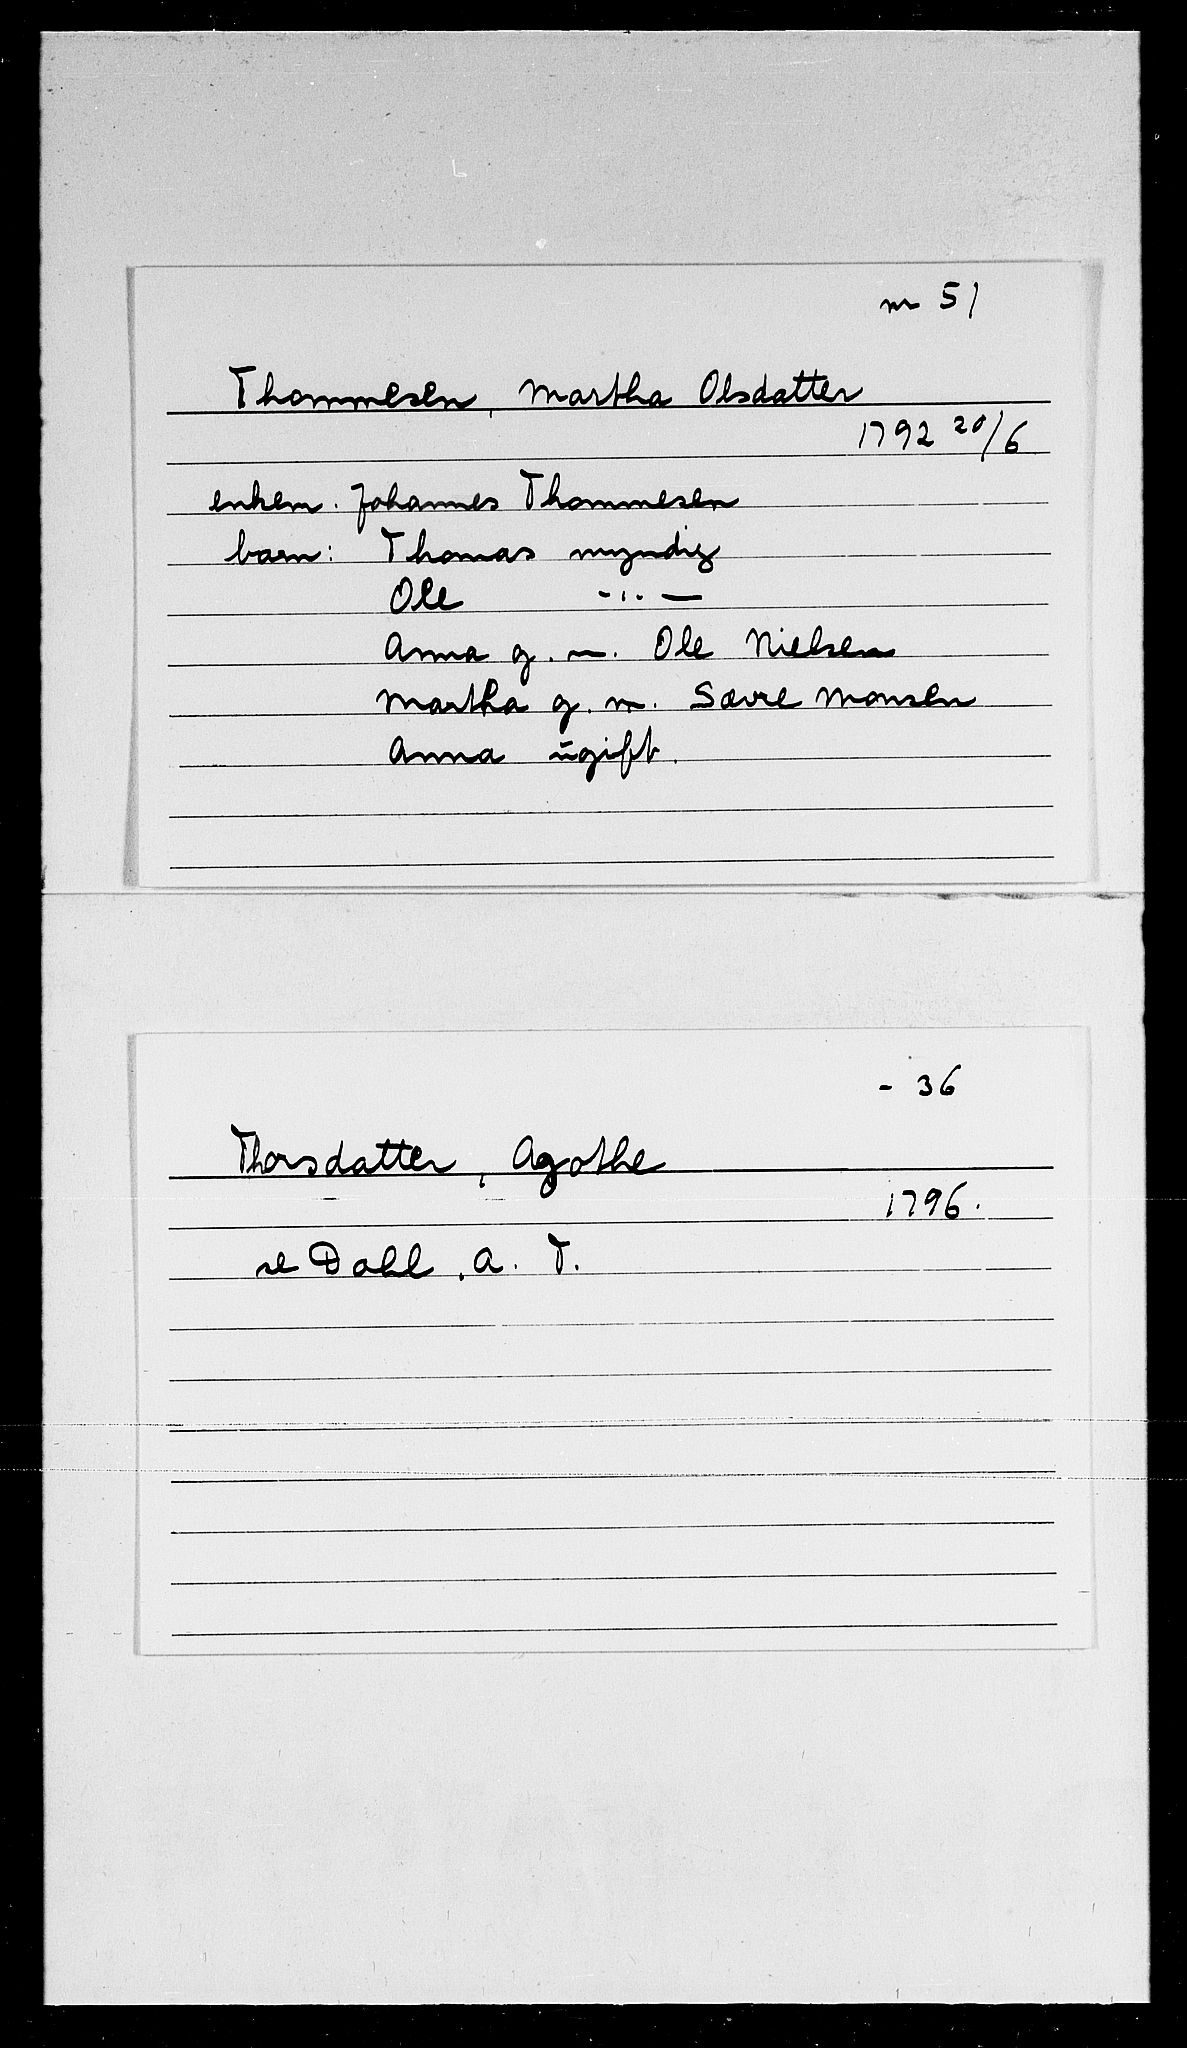 nr 51
Thommesen, Martha Olsdatter
1792 20/6
enkem. Johannes Thommesen
barn: Thomas myndig
Ole -"-
Anna g. m. Ole Nielsen
Martha g. m. Sævre Monsen
Anna ugift.
- 36
Thorsdatter, Agathe
1796.
se Dahl, A. T.